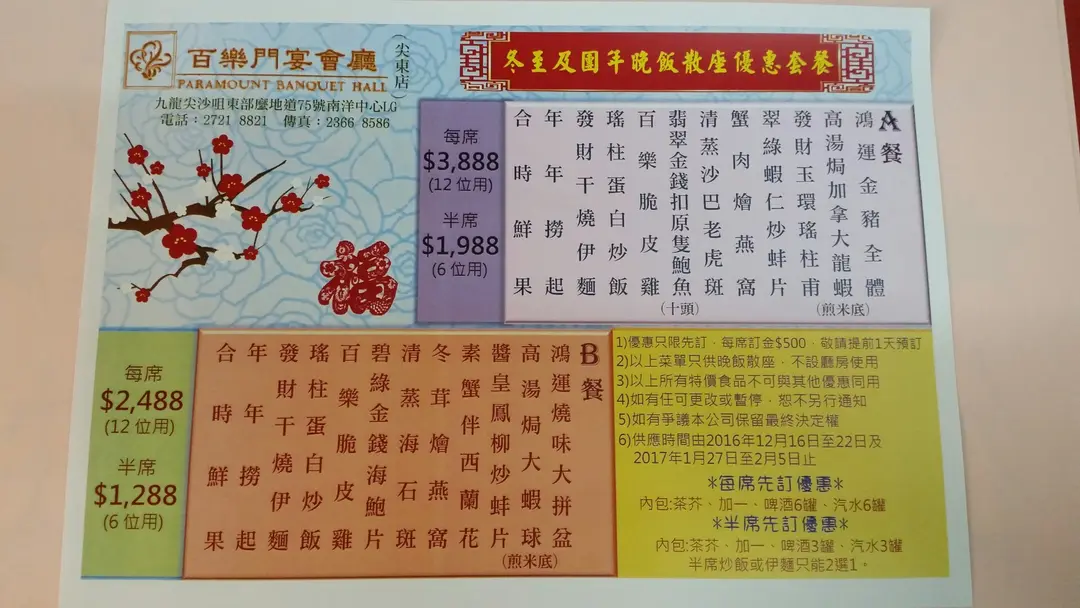 百樂門宴會廳
(尖東店)
PARAMOUNT BANQUET HALL
九龍尖沙咀東部麼地道75號南洋中心LG
電話：2721 8821 傳真：2366 8586
冬至及團年晚飯散座優惠套餐
每席
$3,888
(12 位用)
半席
$1,988
(6 位用)
A餐
鴻運金豬全體
高湯焗加拿大龍蝦
(煎米底)
發財玉環瑤柱甫
翠綠蝦仁炒蚌片
蟹肉燴燕窩
清蒸沙巴老虎斑
翡翠金錢扣原隻鮑魚
(十頭)
百樂脆皮雞
瑤柱蛋白炒飯
發財干燒伊麵
年年撈起
合時鮮果
福
每席
$2,488
(12 位用)
半席
$1,288
(6 位用)
B餐
鴻運燒味大拼盆
高湯焗大蝦球
(煎米底)
醬皇鳳柳炒蚌片
素蟹伴西蘭花
冬茸燴燕窩
清蒸海石斑
碧綠金錢海鮑片
百樂脆皮雞
瑤柱蛋白炒飯
發財干燒伊麵
年年撈起
合時鮮果
1)優惠只限先訂﹐每席訂金$500﹑敬請提前1天預訂
2)以上菜單只供晚飯散座﹐不設廳房使用
3)以上所有特價食品不可與其他優惠同用
4)如有任可更改或暫停﹐恕不另行通知
5)如有爭議本公司保留最終決定權
6)供應時間由2016年12月16日至22日及
2017年1月27日至2月5日止
*每席先訂優惠*
內包:茶芥、加一、啤酒6罐、汽水6罐
*半席先訂優惠*
內包:茶芥、加一、啤酒3罐、汽水3罐
半席炒飯或伊麵只能2選1。